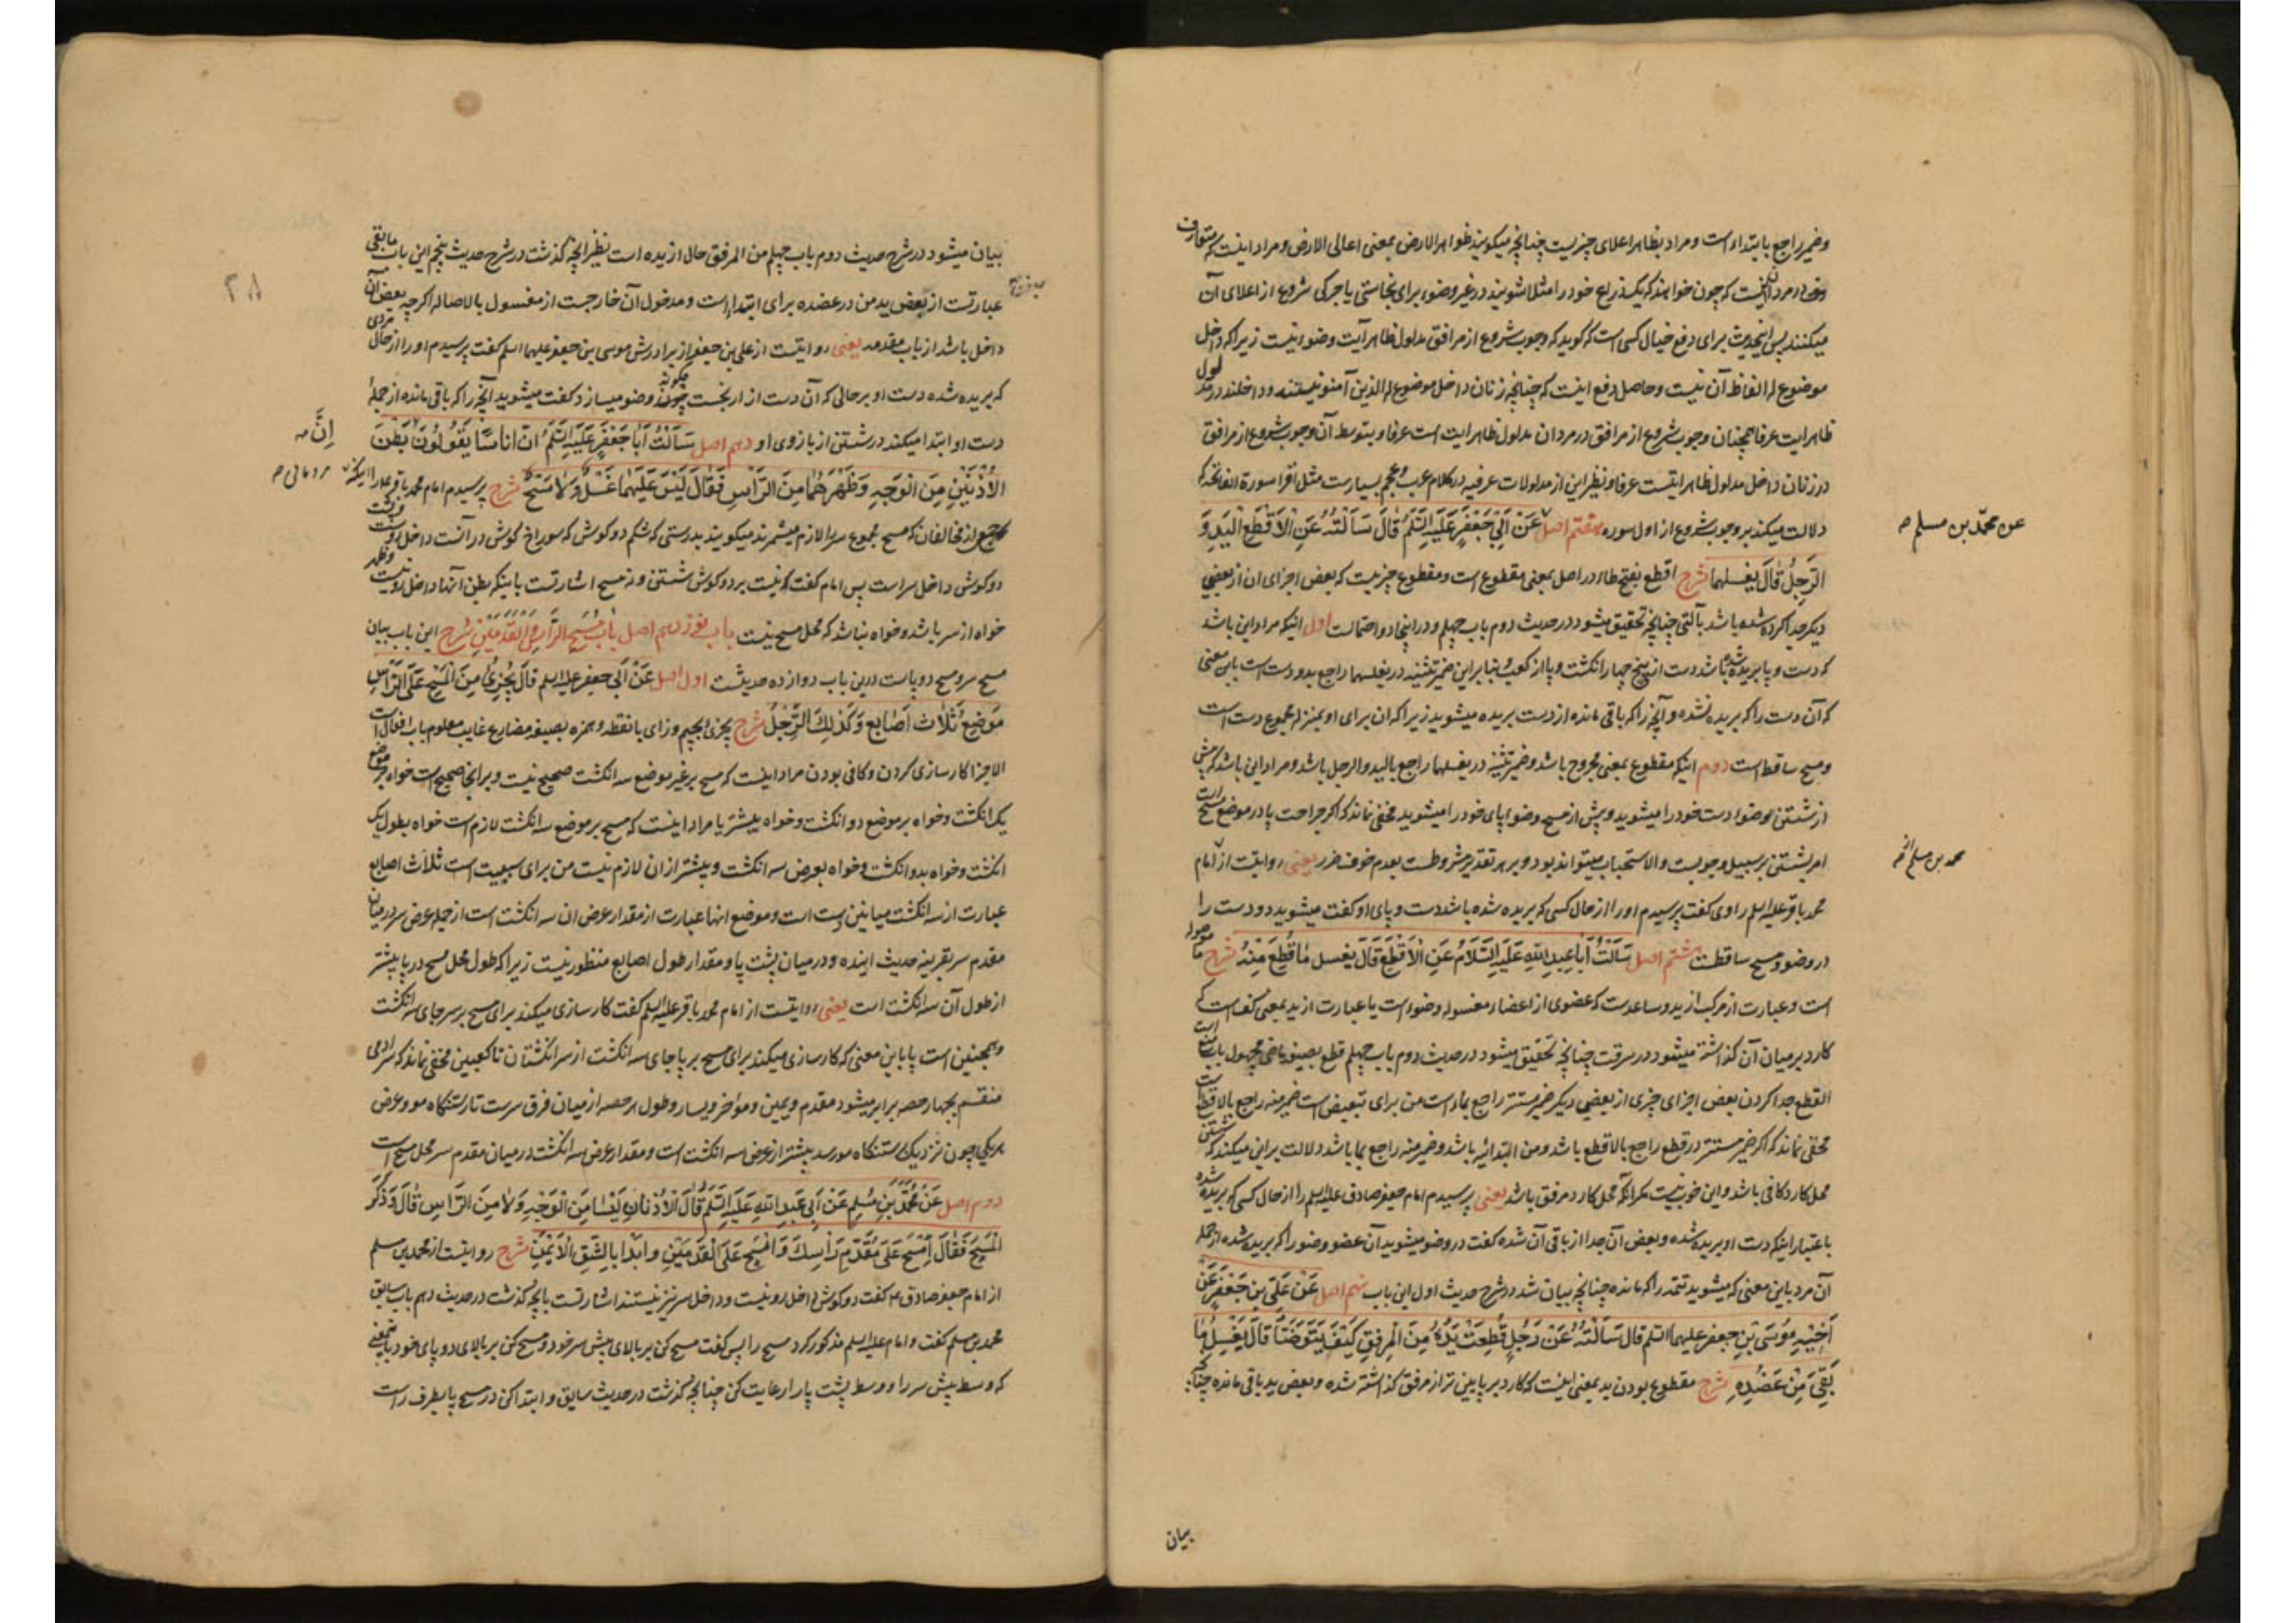 وضمیر راجع بابتداء است و مراد بظاهر اعلای چیزیست چنانچه میکویند ظواهر الارض بمعنی اعالی الارض و مراد اینست که متعارف
که چون خواهند که یکذراع خود را مثلا شویند در غیر وضوء برای نجاستی یا چرکی شروع از اعلای آن
میکنند پس اینحدیث برای دفع خیال کسی است که کوید که وجوب شروع از مرافق مدلول ظاهر آیت وضوء نیست زیرا که داخل
موضوع له الفاظ آن نیست و حاصل دفع اینست که چنانچه زنان داخل موضوع له الذین آمنو نیستند و داخلند در مدلول
ظاهر ایت عرفا همچنان وجوب شروع از مرافق در مردان مدلول ظاهر ایت است عرفا و بتوسط آن وجوب شروع از مرافق
در زنان داخل مدلول ظاهر ایتست عرفا و نظیر این از مدلولات عرفیه در کلام عرب و عجم بسیارست مثل اقرا سورة الفاتحه که
دلالت میکند بر وجوب شروع از اول سوره هفتم اصل عَنْ اَبِی جَعْفَرٍ عَلَیْهِ السَّلَمُ قالَ سَاَلْتُهُ عَنِ الْاَقْطَعِ الْیَدِ وَ
عن محمّد بن مسلم
الرِّجْلِ قالَ یغسلهما شرح اقطع بفتح طاء در اصل بمعنی مقطوع است و مقطوع چیزیست که بعض اجزای ان از بعضی
دیکر جدا کرده شده باشد بآلتی چنانچه تحقیق میشود در حدیث دوم باب چهلم و در اینجا دو احتمالست اول اینکه مراد این باشد
که دست و پا بریده شده باشد دست از بیخ چهار انکشت و پا از کعب بنا براین ضمیر تثنیه در یغسلهما راجع بدو دست است باین معنی
که آن دست را که بریده نشده و آنچه را که باقی مانده از دست بریده میشوید زیرا که ان برای او بمنزله مجموع دست است
و مسح ساقط است دوم اینکه مقطوع بمعنی مجروح باشد و ضمیر تثنیه در یغسلهما راجع بالید و الرجل باشد و مراد این باشد که پیش
از شستن وضوء دست خود را میشوید و پیش از مسح وضوء پای خود را میشوید مخفی نماند که اکر جراحت پا در موضع مسح است
امر بشستن بر سبیل وجوبست و الا استحباب میتواند بود و بر هر تقدیر مشروطست بعدم خوف ضرر یعنی روایتست از امام
محمد بن مسلم
محمد باقر علیه السلم راوی کفت پرسیدم او را از حال کسی که بریده شده باشد دست و پای او کفت میشوید دو دست را
در وضو و مسح ساقطست هشتم اصل سَاَلْتُ اَبا عبد الله عَلَیْهِ السَّلامُ عَنِ الْاَقْطَعِ قالَ یغسل ما قُطِعَ مِنْهُ شرح ما موصوله
است و عبارت از مرکب از ید و ساعدست که عضوی از اعضاء مغسوله وضوء است یا عبارت از ید بمعنی کف است که
کارد بر میان آن کذاشته میشود در سرقت چنانچه تحقیق میشود در حدیث دوم باب چهلم قطع بصیغه ماضی مجهول باب منع است
القطع جدا کردن بعض اجزای چیزی از بعضی دیکر ضمیر مستتر راجع بماء است من برای تبعیض است ضمیر منه راجع بالاقطع است
مخفی نماند که اکر ضمیر مستتر در قطع راجع بالاقطع باشد و من ابتدائیه باشد و ضمیر منه راجع بما باشد دلالت براین میکند که شستن
محل کارد کافی باشد و این خوب نیست مکر انکه محل کارد مرفق باشد یعنی پرسیدم امام جعفر صادق علیه السلم را از حال کسی که بریده شده
باعتبار اینکه دست او بریده شده و بعض آن جدا از باقی آن شده کفت در وضو میشوید آن عضو وضو را که بریده شده از جمله
آن مرد باین معنی که میشوید تتمه را که مانده چنانچه بیان شد در شرح حدیث اول این باب نهم اصل عَنْ عَلِیِّ بنِ جَعْفَرٍ عَنْ
اَخِیْهِ مُوسَی بْنِ جعفر علیهما السّلم قالَ سَاَلْتُهُ عَنْ رَجُلٍ قُطِعَتْ یَدُهُ مِنَ الْمِرْفَقِ کَیْفَ یَتَوَضَّأُ قالَ یَغْسِلُ ما
بَقِیَ مِنْ عَضُدِهِ شرح مقطوع بودن ید بمعنی اینست که کارد بر پایین تر از مرفق کذاشته شده و بعض ید باقی مانده چنانچه
بیان
بیان میشود در شرح حدیث دوم باب چهلم من المرفق حال از یده است نظیر انچه کذشت در شرح حدیث پنجم این باب مابقی
عبارتست از بعض ید من در عضده برای ابتداء است و مدخول آن خارجست از مغسول بالاصاله اکرچه بعض آن
داخل باشد از باب مقدمه یعنی روایتست از علی بن جعفر از برادرش موسی بن جعفر علیهما السلم کفت پرسیدم او را از حال مردی
که بریده شده دست او بر حالی که آن دست از ارنجست چکونه وضو میسازد کفت میشوید آنچه را که باقی مانده از جملهٔ
دست او ابتدا میکند در شستن از بازوی او دهم اصل سَاَلْتُ اَبا جَعْفَرٍ عَلَیْهِ السَّلَمُ انّ اناسًا یَقُولُونَ بَطْنَ
اِنَّ
الْاُذُنَیْنِ مِنَ الْوَجْهِ وَ ظَهْرَهُما مِنَ الرَّاْسِ فَقالَ لَیْسَ عَلَیْهِما غَسْلٌ وَلا مَسْحٌ شرح پرسیدم امام محمد باقر علیه را اینکه
مردمانی
جمع از مخالفان که مسح مجموع سر را لازم میشمرند میکویند بدرستی که شکم دو کوش که سوراخ کوش در آنست داخل روست و پشت
دو کوش داخل سر است پس امام کفت که نیست بر دو کوش شستن و نه مسح اشارتست باینکه بطن آنها داخل رو نیست و ظهر
خواه از سر باشد و خواه نباشد که محل مسح نیست باب نوزدهم اصل بابُ مَسْحِ الرَّاْسِ وَ الْقَدَمَیْنِ شرح این باب بیان
مسح سر و مسح دو پاست درین باب دوازده حدیثست اول اصل عَنْ اَبی جعفر علیه السلم قالَ یُجْزِئُ مِنَ الْمَسْحِ عَلَی الرَّاْسِ
مَوْضِعُ ثَلاثِ اَصابِعَ وَ کَذلِکَ الرِّجْلُ شرح یجزی بجیم و زای بانقطه و همزه بصیغه مضارع غایب معلوم باب افعال است
الاجزا کارسازی کردن و کافی بودن مراد اینست که مسح بر غیر موضع سه انکشت صحیح نیست و بر انجا صحیح است خواه بر موضع
یک انکشت و خواه بر موضع دو انکشت و خواه بیشتر یا مراد اینست که مسح بر موضع سه انکشت لازم است خواه بطول یک
انکشت و خواه بدو انکشت و خواه بعرض سه انکشت و بیشتر از ان لازم نیست من برای سببیت است ثلاث اصابع
عبارت از سه انکشت میانین دست است و موضع انها عبارت از مقدار عرض ان سه انکشت است از جمله عرض سر در میان
مقدم سر بقرینه حدیث اینده و در میان پشت پا و مقدار طول اصابع منظور نیست زیرا که طول محل مسح در پا بیشتر
از طول آن سه انکشت است یعنی روایتست از امام محمد باقر علیه السلم کفت کارسازی میکند برای مسح بر سر جای سه انکشت
و همچنین است پا باین معنی که کارسازی میکند برای مسح بر پا جای سه انکشت از سر انکشتان تا کعبین مخفی نماند که سر ادمی
منقسم بچهار حصه برابر میشود مقدم و یمین و مؤخر و یسار و طول هر حصه از میان فرق سرست تا رستنکاه مو و عرض
هر یکی چون نزدیک رستنکاه مو رسد بیشتر از عرض سه انکشت است و مقدار عرض سه انکشت در میان مقدم سر محل مسح است
دوم اصل عَنْ مُحَمَّدِ بْنِ مُسْلِمٍ عَنْ اَبِی عَبْدِ اللهِ عَلَیْهِ السَّلَمُ قالَ الْاُذُنانِ لَیْسا مِنَ الْوَجْهِ وَلا مِنَ الرَّاسِ قالَ وَ ذَکَرَ
الْمَسْحَ فَقالَ اِمْسَحْ عَلَی مُقَدَّمِ رَاْسِکَ وَ امْسَحْ عَلَی الْقَدَمَیْنِ وَ ابْدَأ بِالشِّقِّ الْاَیْمَنِ شرح روایتست از محمد بن مسلم
از امام جعفر صادق ع کفت دو کوش داخل رو نیست و داخل سر نیز نیستند اشارتست بانچه کذشت در حدیث دهم باب سابق
محمد بن مسلم کفت و امام علیه السلم مذکور کرد مسح را پس کفت مسح کن بر بالای پیش سر خود و مسح کن بر بالای دو پای خود باینمعنی
که وسط پیش سر را و وسط پشت پا را رعایت کن چنانچه کذشت در حدیث سابق و ابتدا کن در مسح پا بطرف راست